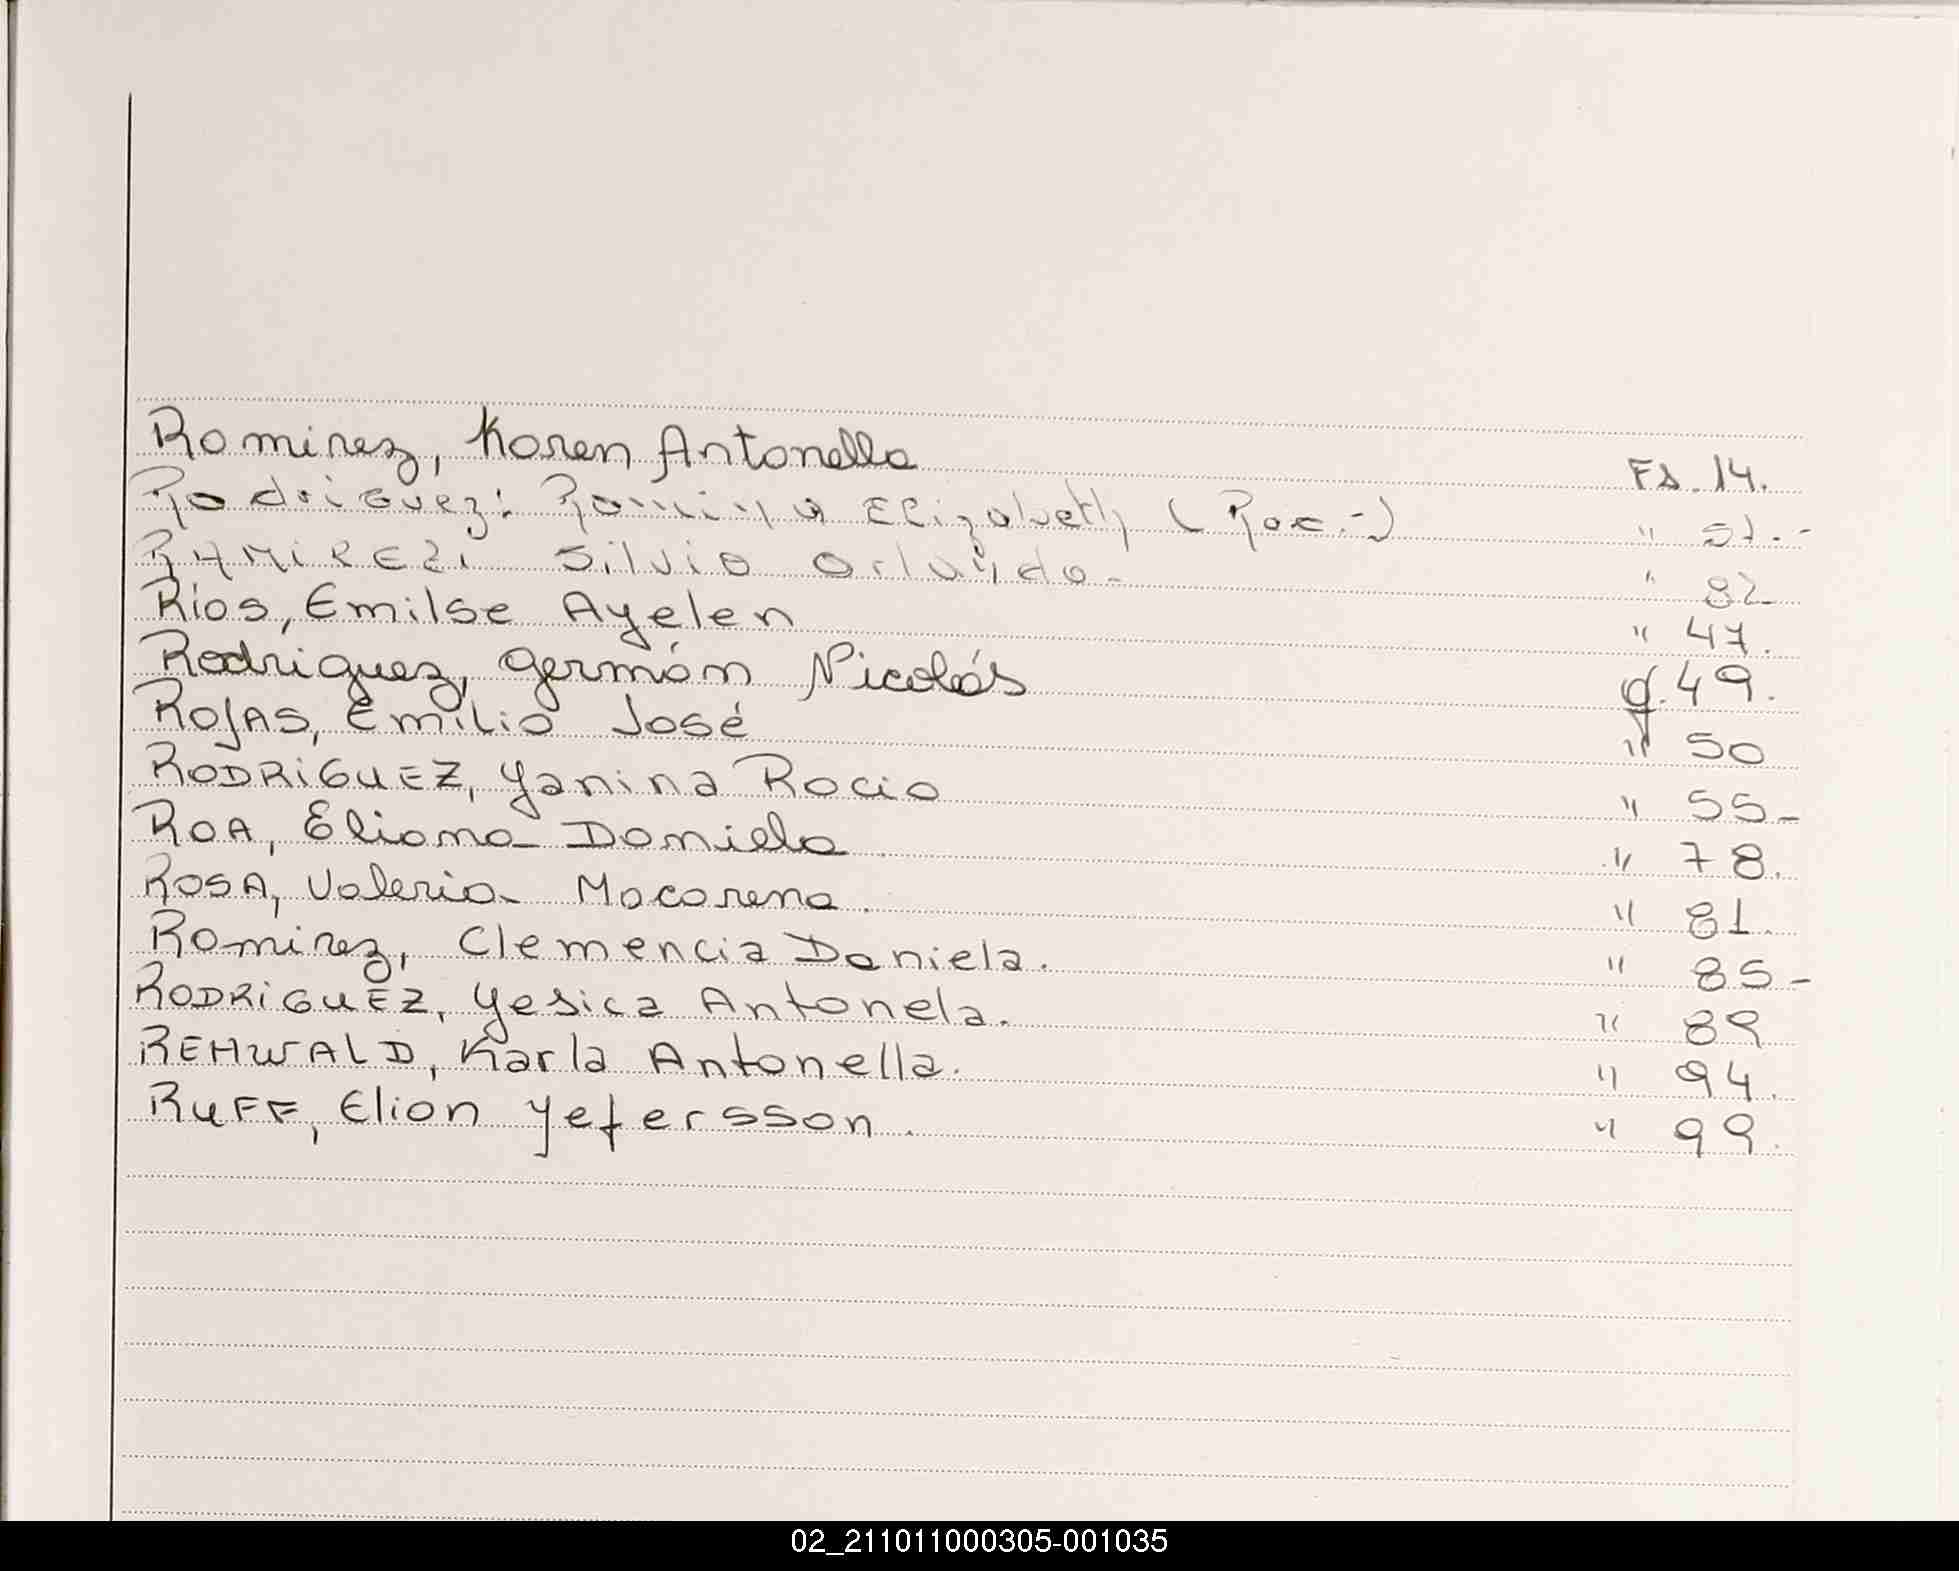 Ramirez, Karen Antonella Fs. 14.
Rodriguez: Romina Elizabeth (Rec.-) " 57.-
RAMIREZ: Silvio Orlando.- " 82
Ríos, Emilse Ayelen " 47.
Rodriguez, Germán Nicolás f. 49.
ROJAS, Emilio José " 50
RODRIGUEZ, Yanina Rocio " 55-
ROA, Eliana Daniela " 78.
ROSA, Valeria Macarena. " 81.
Ramirez, Clemencia Daniela. " 85-
RODRIGUEZ, Yesica Antonela. " 89
REHWALD, Karla Antonella. " 94.
RUFF, Elion Yefersson. " 99.
02_211011000305-001035